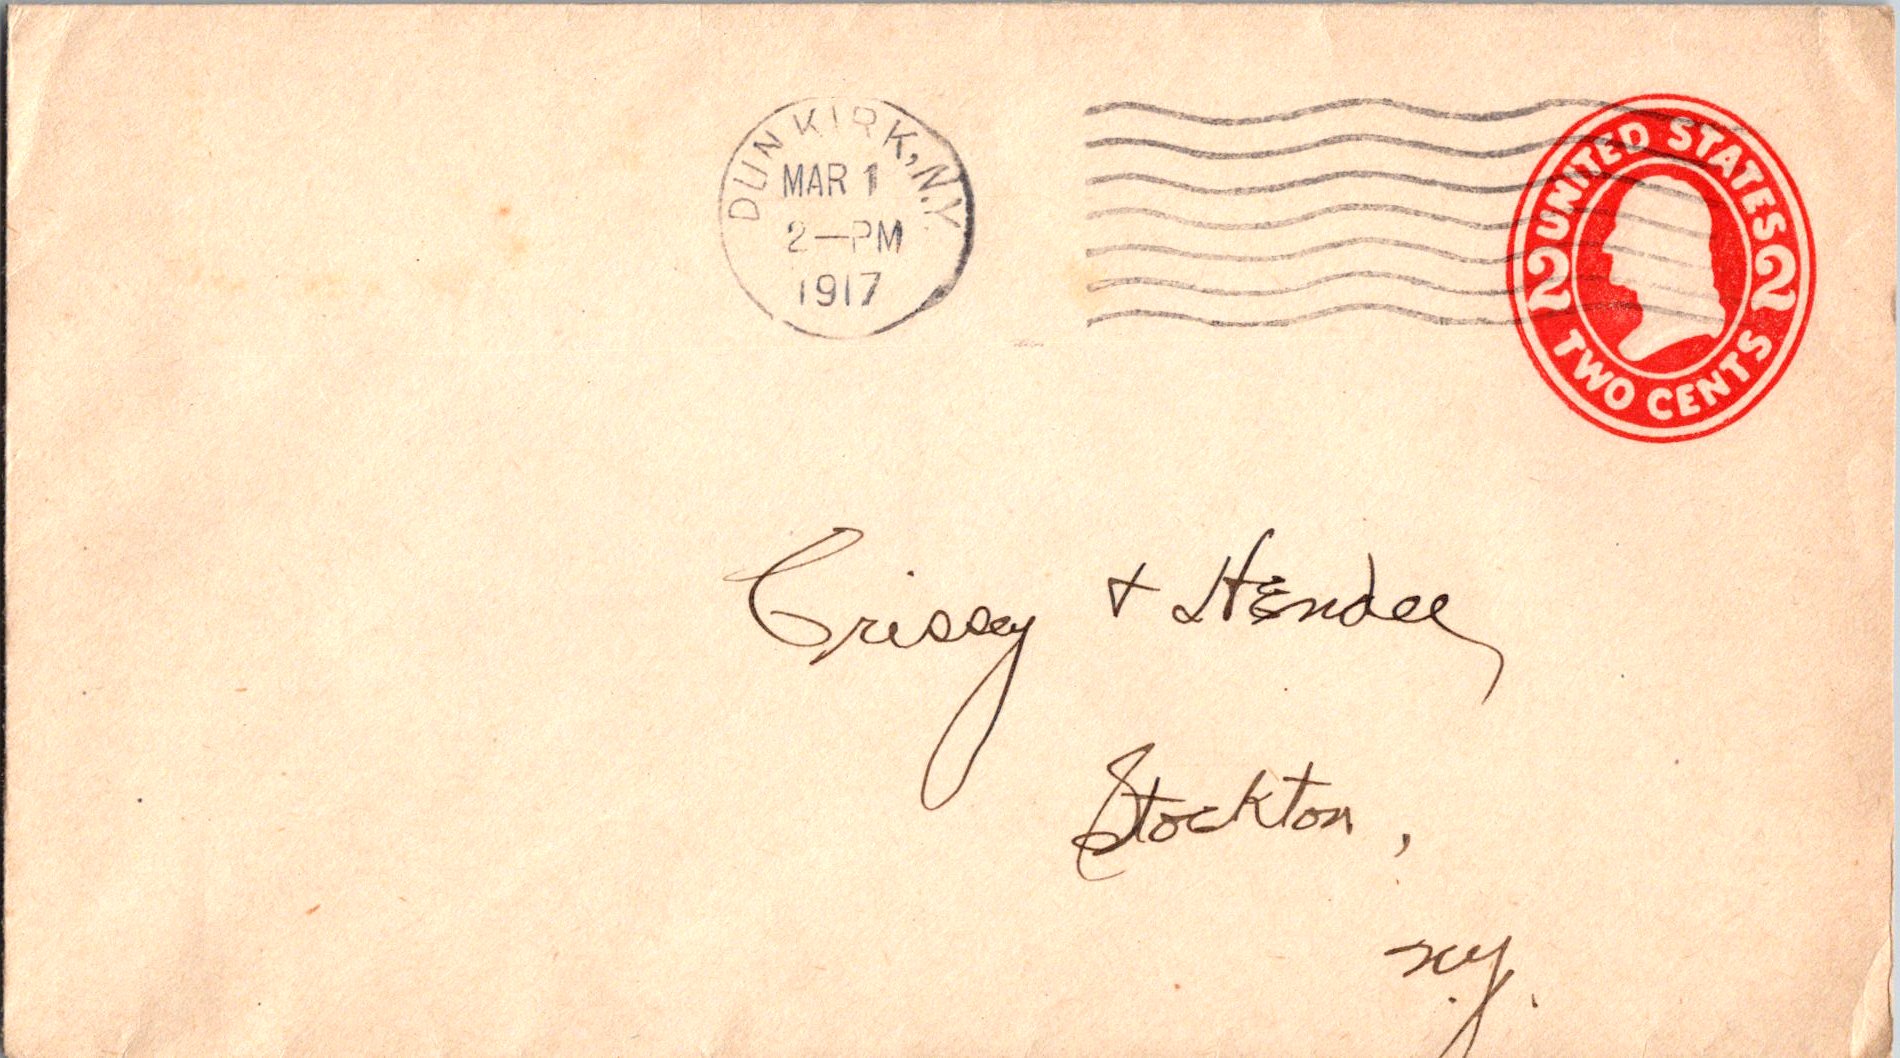 DUNKIRK, N.Y.
MAR 1
2—PM
1917
UNITED STATES
2 2
TWO CENTS
Crissey + Hendee
Stockton,
N.Y.